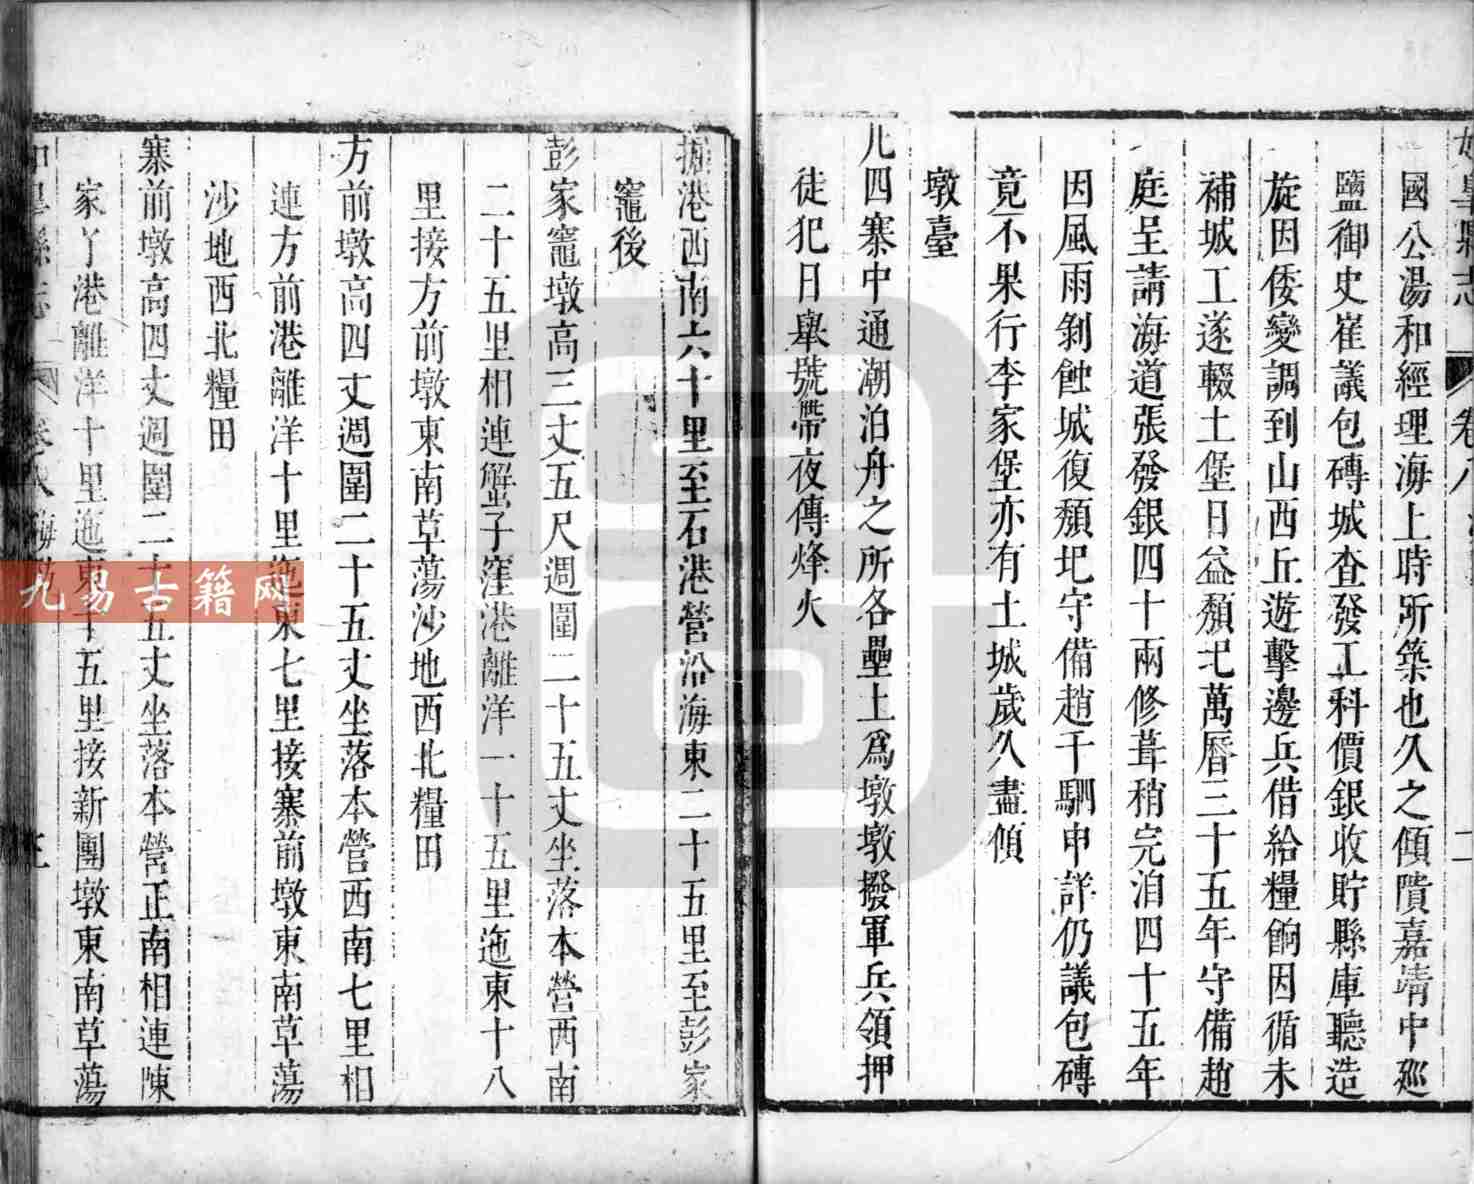 國公湯和經理海上時所築也久之傾隤嘉靖中廵
鹽御史崔議包磚城查發工科價銀收貯縣庫聽造
旋因倭變調到山西丘遊擊邊兵借給糧餉因循未
補城工遂輟土堡日益頽圯萬曆三十五年守備趙
庭呈請海道張發銀四十兩修葺稍完洎四十五年
因風雨剝蝕城復頽圯守備趙千駟申詳仍議包磚
竟不果行李家堡亦有土城歲久盡傾
墩臺
凡四寨中通潮泊舟之所各壘土爲墩墩撥軍兵領押
徒犯日舉號帶夜傳烽火
掘港西南六十里至石港營沿海東二十五里至彭家
竈後
彭家竈墩高三丈五尺週圍二十五丈坐落本營西南
二十五里相連蟹子窪港離洋一十五里迤東十八
里接方前墩東南草蕩沙地西北糧田
方前墩高四丈週圍二十五丈坐落本營西南七里相
連方前港離洋十里迤東七里接寨前墩東南草蕩
沙地西北糧田
寨前墩高四丈週圍二十五丈坐落本營正南相連陳
家丫港離洋十里迤東十五里接新團墩東南草蕩
如皋縣志 卷八
九易古籍网